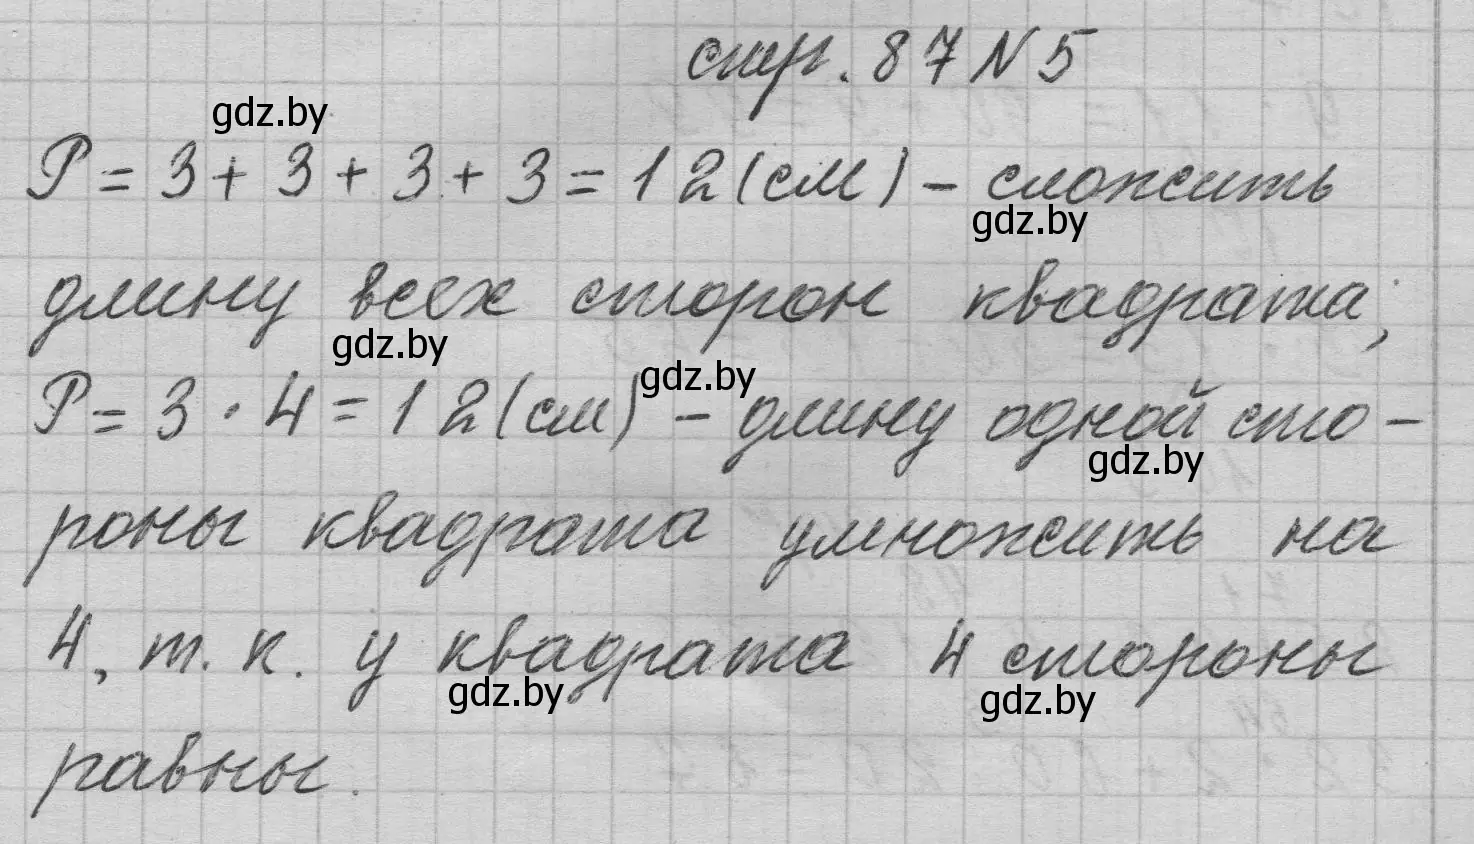 стр. 87 N 5
gdz.by
P = 3 + 3 + 3 + 3 = 12 (см) – сложить
gdz.by
длину всех сторон квадрата;
gdz.by
gdz.by
P = 3 · 4 = 12 (см) – длину одной сто-
gdz.by
роны квадрата умножить на
4, т. к. у квадрата 4 стороны
gdz.by gdz.by
равны.